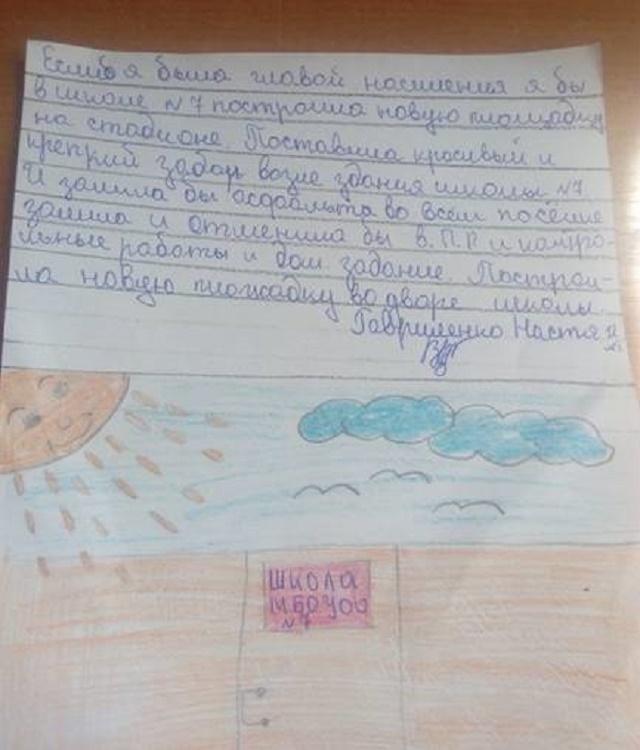 Если б я была главой населения я бы
в школе №7 построила новую площадку
на стадионе. Поставила красивый и
крепкий забор возле здания школы №7.
И залила бы асфальта во всём посёлке
залила и отменила бы В.П.Р и контро-
льные работы и дом. задание. Построи-
ла новую площадку во дворе школы.
Гавриленко Настя
ШКОЛА
МБОУОО
№7